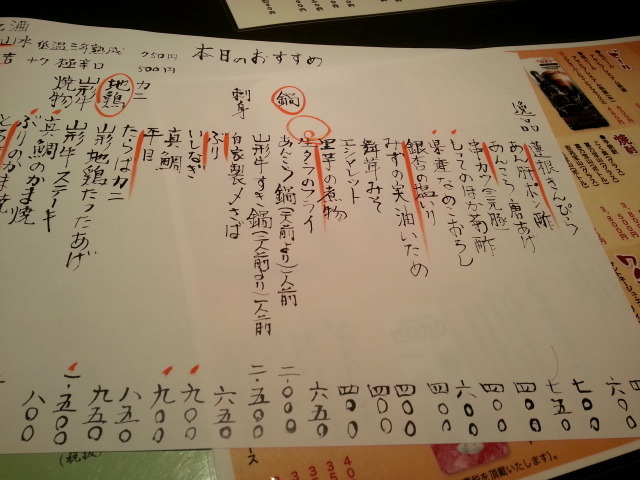 本日のおすすめ
逸品
蓮根きんぴら
あん肝ポン酢
あんこう唐あげ
串カツ三元豚
しってのほか菊酢
なめこおろし
銀杏の塩いり
みずの実油いため
舞茸みそ
エシャレット
里芋の煮物
生タラのフライ
鍋
あんこう鍋(二人前より)一人前
山形牛すき鍋(二人前より)一人前
刺身
自家製〆さば
ぶり
いしなぎ
真鯛
平目
カニ
たらばガニ
地鶏
山形地鶏たつたあげ
山形牛
山形牛ステーキ
焼物
真鯛のかま焼
ぶりのかま焼
極辛口
750円
500円
六〇〇
七〇〇
七五〇
四〇〇
四〇〇
六〇〇
四〇〇
四〇〇
四〇〇
四〇〇
六五〇
二、〇〇〇
二、五〇〇
六五〇
九〇〇
九〇〇
八五〇
九五〇
一、五〇〇
八〇〇
(税抜)
税を頂戴いたします)。